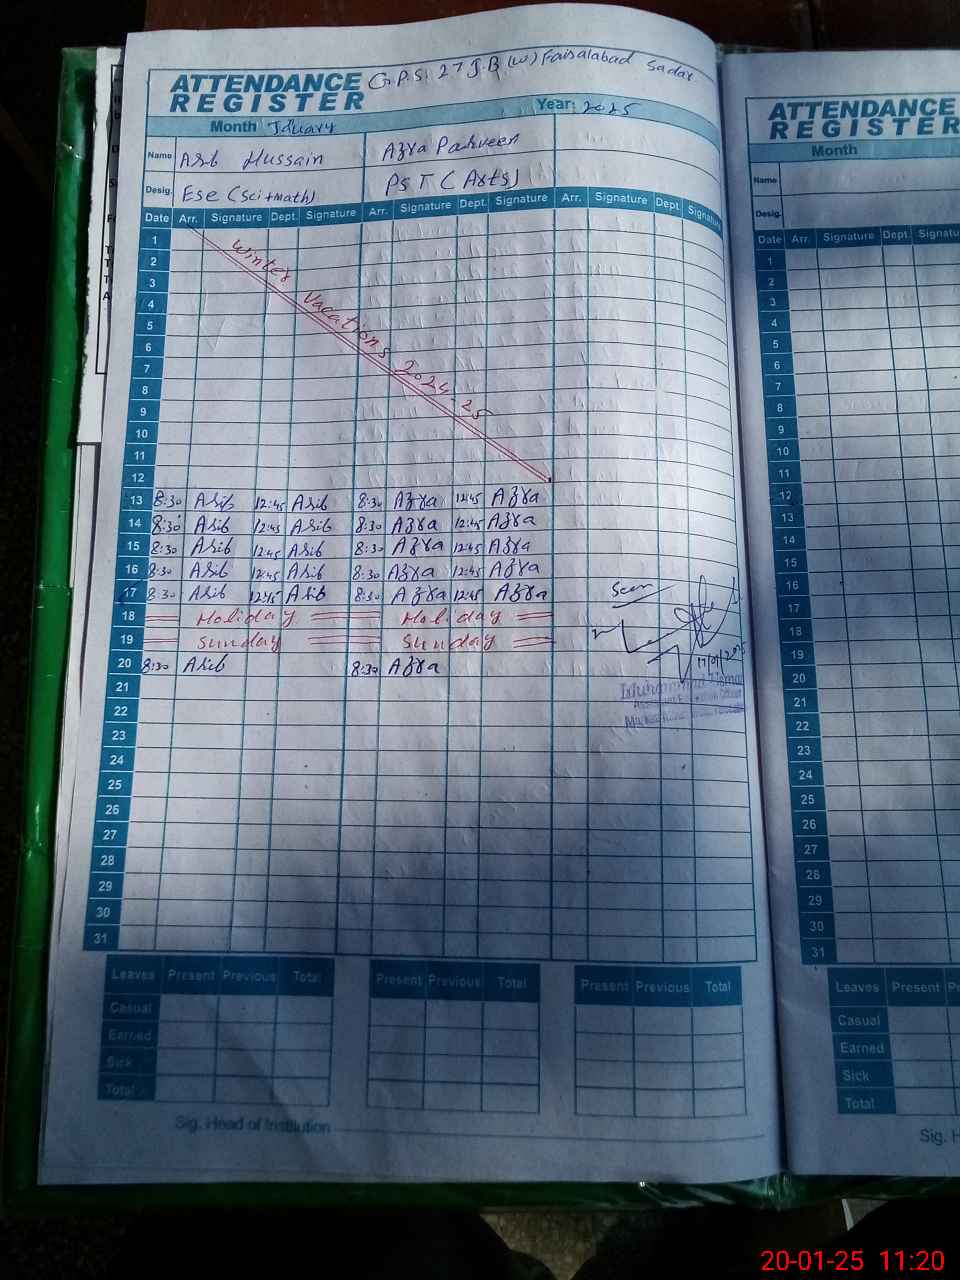 ATTENDANCE REGISTER G.P.S! 27 J.B (W) Faisalabad Sadar
Month Jduary Year: 2025
Name Asib Hussain Azra Parveen
Desig. Ese (Sci+Math) PST (Arts)
Date Arr. Signature Dept. Signature Arr. Signature Dept. Signature Arr. Signature Dept. Signature
1
2
3
4
5
6
7
8
9
10
11
12
Winter Vacations 2024-25
13 8:30 Asib 12:45 Asib 8:30 Azra 12:45 Azra
14 8:30 Asib 12:45 Asib 8:30 Azra 12:45 Azra
15 8:30 Asib 12:45 Asib 8:30 Azra 12:45 Azra
16 8:30 Asib 12:45 Asib 8:30 Azra 12:45 Azra
17 8:30 Asib 12:45 Asib 8:30 Azra 12:45 Azra
18 Holiday Holiday
19 Sunday Sunday
20 8:30 Asib 8:30 Azra
21
22
23
24
25
26
27
28
29
30
31
Seen
17/01/2025
Leaves Present Previous Total Present Previous Total Present Previous Total
Casual
Earned
Sick
Total
Sig. Head of Institution
ATTENDANCE
REGISTER
Month
Name
Desig.
Date Arr. Signature Dept. Signatu
1
2
3
4
5
6
7
8
9
10
11
12
13
14
15
16
17
18
19
20
21
22
23
24
25
26
27
28
29
30
31
Leaves Present Pr
Casual
Earned
Sick
Total
Sig. H
20-01-25 11:20